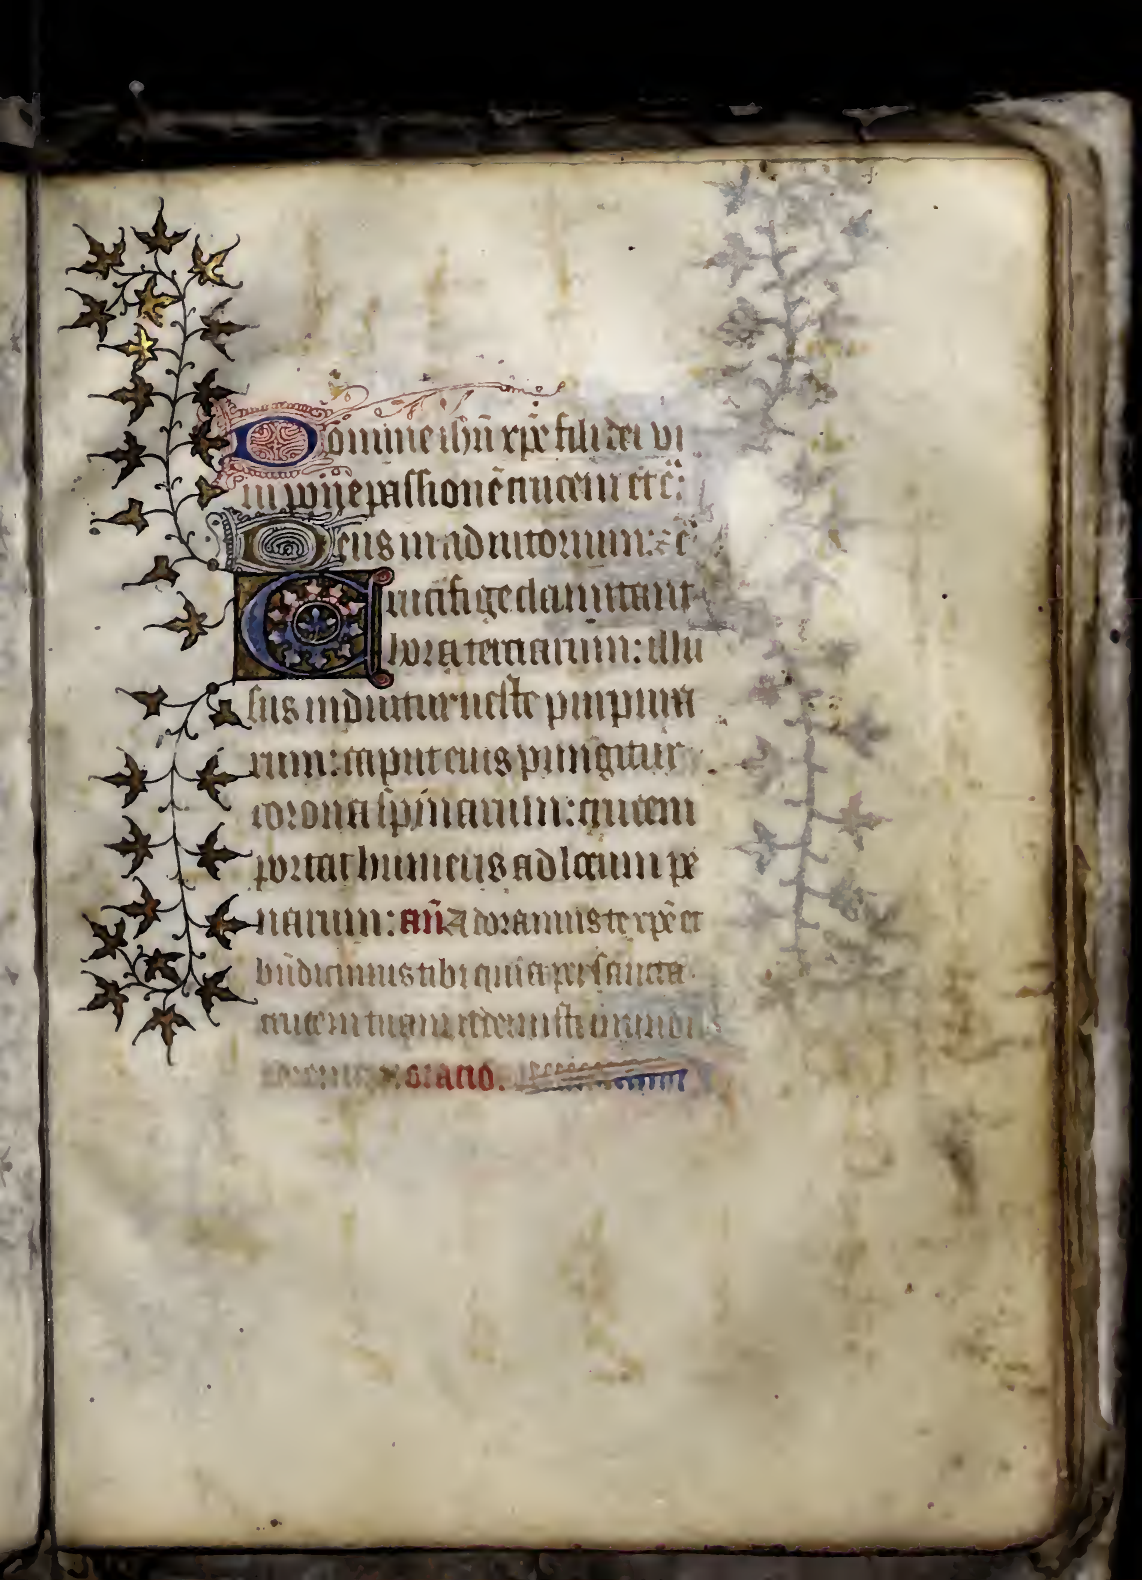 Domine ihũ xp̃e fili dei vi
ui pone passionẽ crucem et c̃:
Deus in adiutorium: ⁊ c̃
Crucifige clamitant
hora terciarum: illu
sus induitur ueste purpura
rum: caput eius pungitur
corona spinarum: crucem
portat humeris ad locum pe
narum: añ Adoramus te xp̃e et
bñdicimus tibi quia per sancta
crucem tuam redemisti mundũ
oracio.